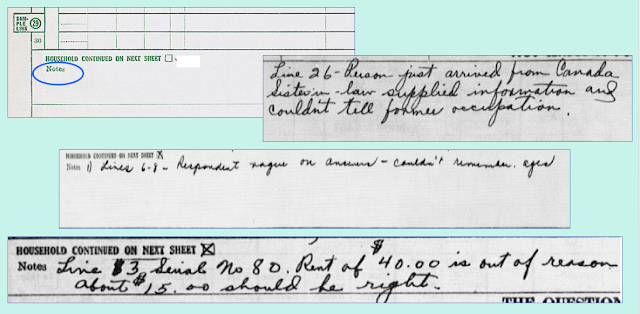 SAM-
PLE
LINE 29
30
HOUSEHOLD CONTINUED ON NEXT SHEET
Notes
Line 26 - Person just arrived from Canada
Sister-in-law supplied information and
couldn't tell former occupation.
HOUSEHOLD CONTINUED ON NEXT SHEET
Notes 1) Lines 6-9 - Respondent vague on answers - couldn't remember ages
HOUSEHOLD CONTINUED ON NEXT SHEET
Notes Line 3, Serial No 80. Rent of $40.00 is out of reason
About $15.00 should be right.
THE QUESTION